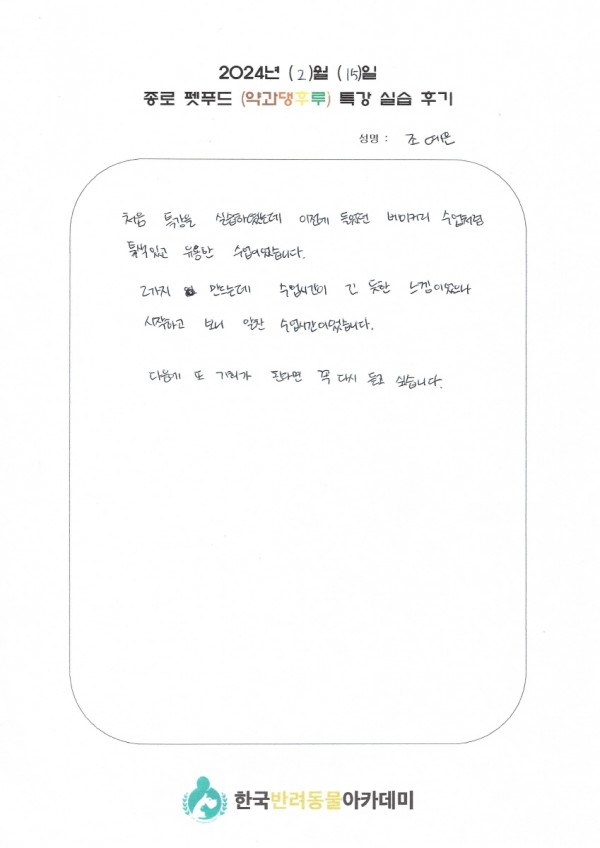 2024년 (2)월 (15)일
종로 펫푸드 (약과댕후루) 특강 실습 후기
성명 : 조예은
처음 특강을 실습하였는데 이전에 들었던 베이커리 수업처럼
특색있고 유용한 수업이었습니다.
2가지 만드는데 수업시간이 긴 듯한 느낌이었으나
시작하고 보니 알찬 수업시간이었습니다.
다음에 또 기회가 된다면 꼭 다시 듣고 싶습니다.
한국반려동물아카데미